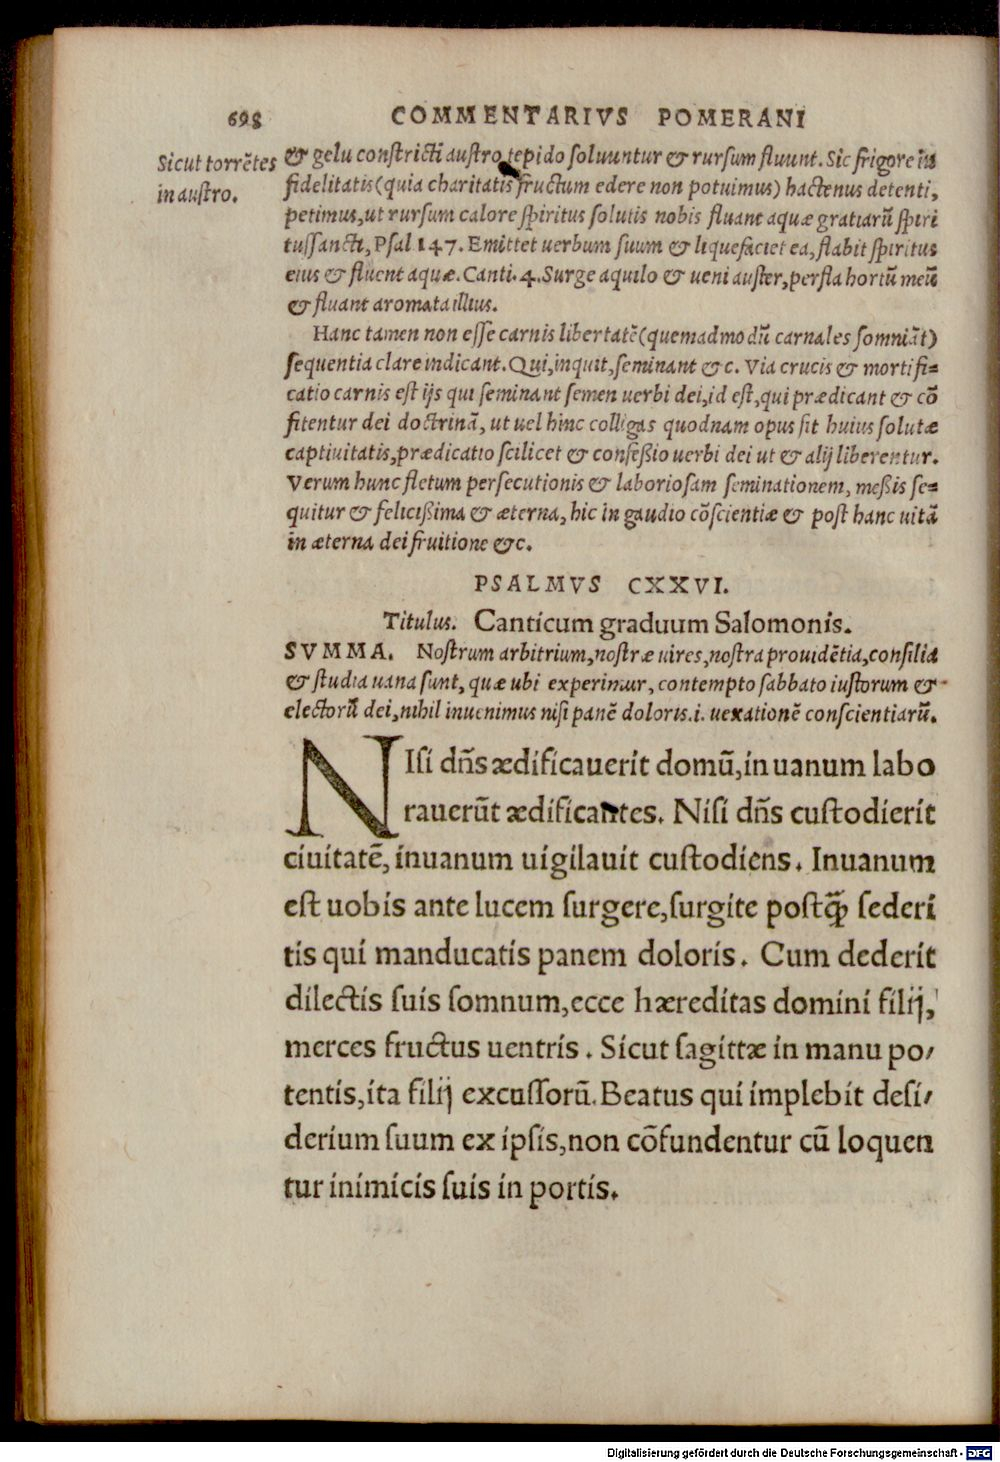 698 COMMENTARIVS POMERANI
Sicut torrẽtes
in austro.
& gelu constricti austro tepido soluuntur & rursum fluunt. Sic frigore in
fidelitatis (quia charitatis fructum edere non potuimus) hactenus detenti,
petimus, ut rursum calore spiritus solutis nobis fluant aquæ gratiarũ spiri
tussancti, Psal 147. Emittet uerbum suum & liquefaciet ea, flabit spiritus
eius & fluent aquæ. Canti. 4. Surge aquilo & ueni auster, perfla hortũ meũ
& fluant aromata illius.
Hanc tamen non esse carnis libertatẽ (quemadmodũ carnales somniãt)
sequentia clare indicant. Qui, inquit, seminant &c. Via crucis & mortifi=
catio carnis est ijs qui seminant semen uerbi dei, id est, qui prædicant & cõ
fitentur dei doctrinã, ut uel hinc colligas quodnam opus sit huius solutæ
captiuitatis, prædicatio scilicet & confeßio uerbi dei ut & alij liberentur.
Verum hunc fletum persecutionis & laboriosam seminationem, meßis se=
quitur & felicißima & æterna, hic in gaudio cõscientiæ & post hanc uitã
in æterna dei fruitione &c.
PSALMVS CXXVI.
Titulus. Canticum graduum Salomonis.
SVMMA. Nostrum arbitrium, nostræ uires, nostra prouidẽtia, consilia
& studia uana sunt, quæ ubi experimur, contempto sabbato iustorum &
electorũ dei, nihil inuenimus nisi panẽ doloris. i. uexationẽ conscientiarũ.
NIsi dñs ædificauerit domũ, in uanum labo
rauerũt ædificantes. Nisi dñs custodierit
ciuitatẽ, inuanum uigilauit custodiens. Inuanum
est uobis ante lucem surgere, surgite postꝗ̃ sederi
tis qui manducatis panem doloris. Cum dederit
dilectis suis somnum, ecce hæreditas domini filij,
merces fructus uentris. Sicut sagittæ in manu po/
tentis, ita filij excussorũ. Beatus qui implebit desi/
derium suum ex ipsis, non cõfundentur cũ loquen
tur inimicis suis in portis.
Digitalisierung gefördert durch die Deutsche Forschungsgemeinschaft - DFG